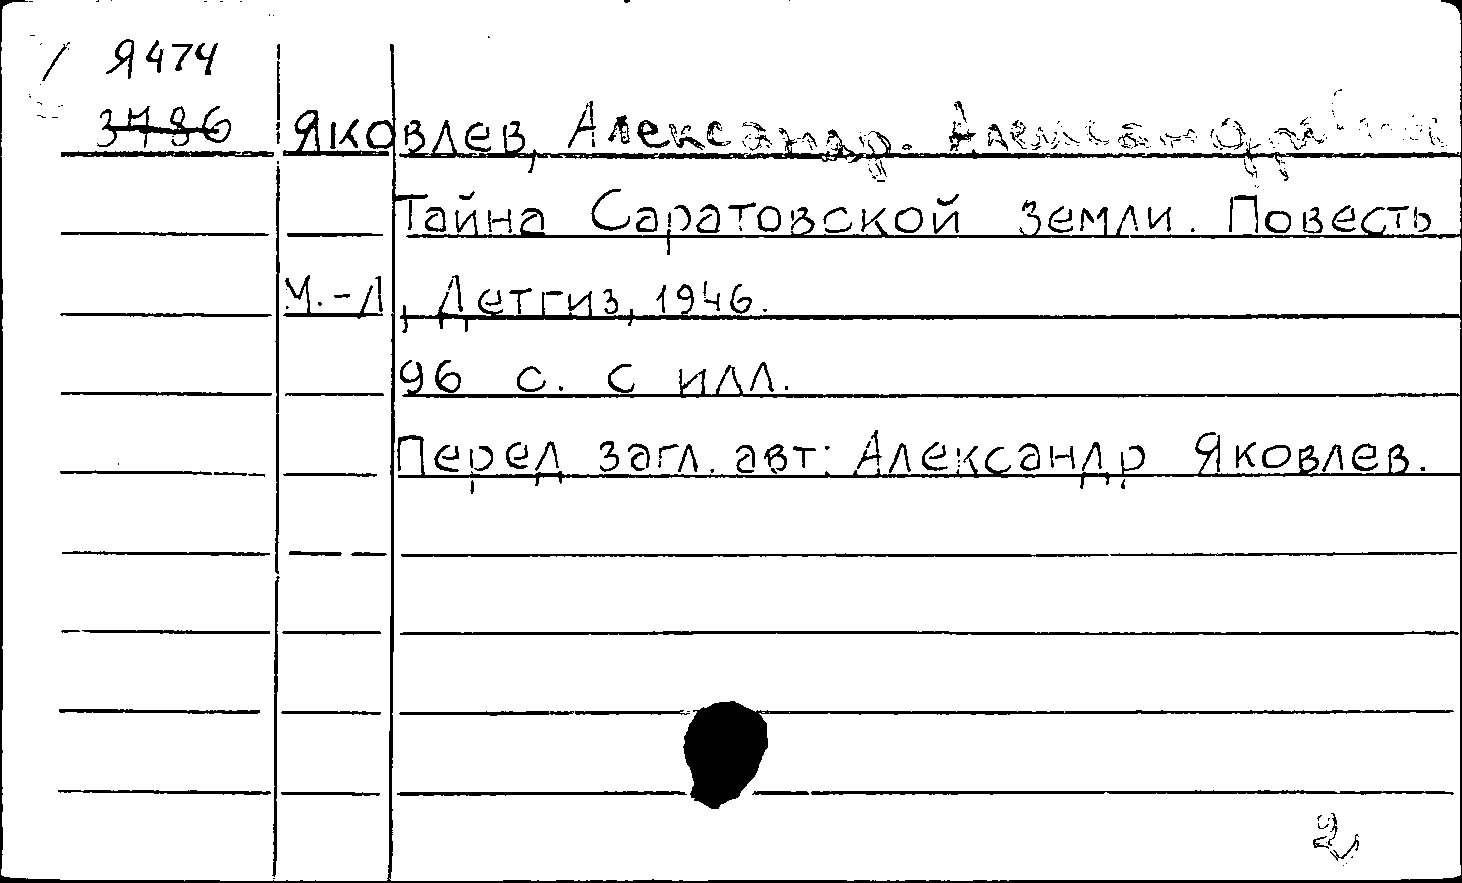 Я474
3786 Яковлев, Александр.
Тайна Саратовской земли. Повесть
М.-Л, Детгиз, 1946.
96 с. с илл.
Перед загл. авт: Александр Яковлев.
2